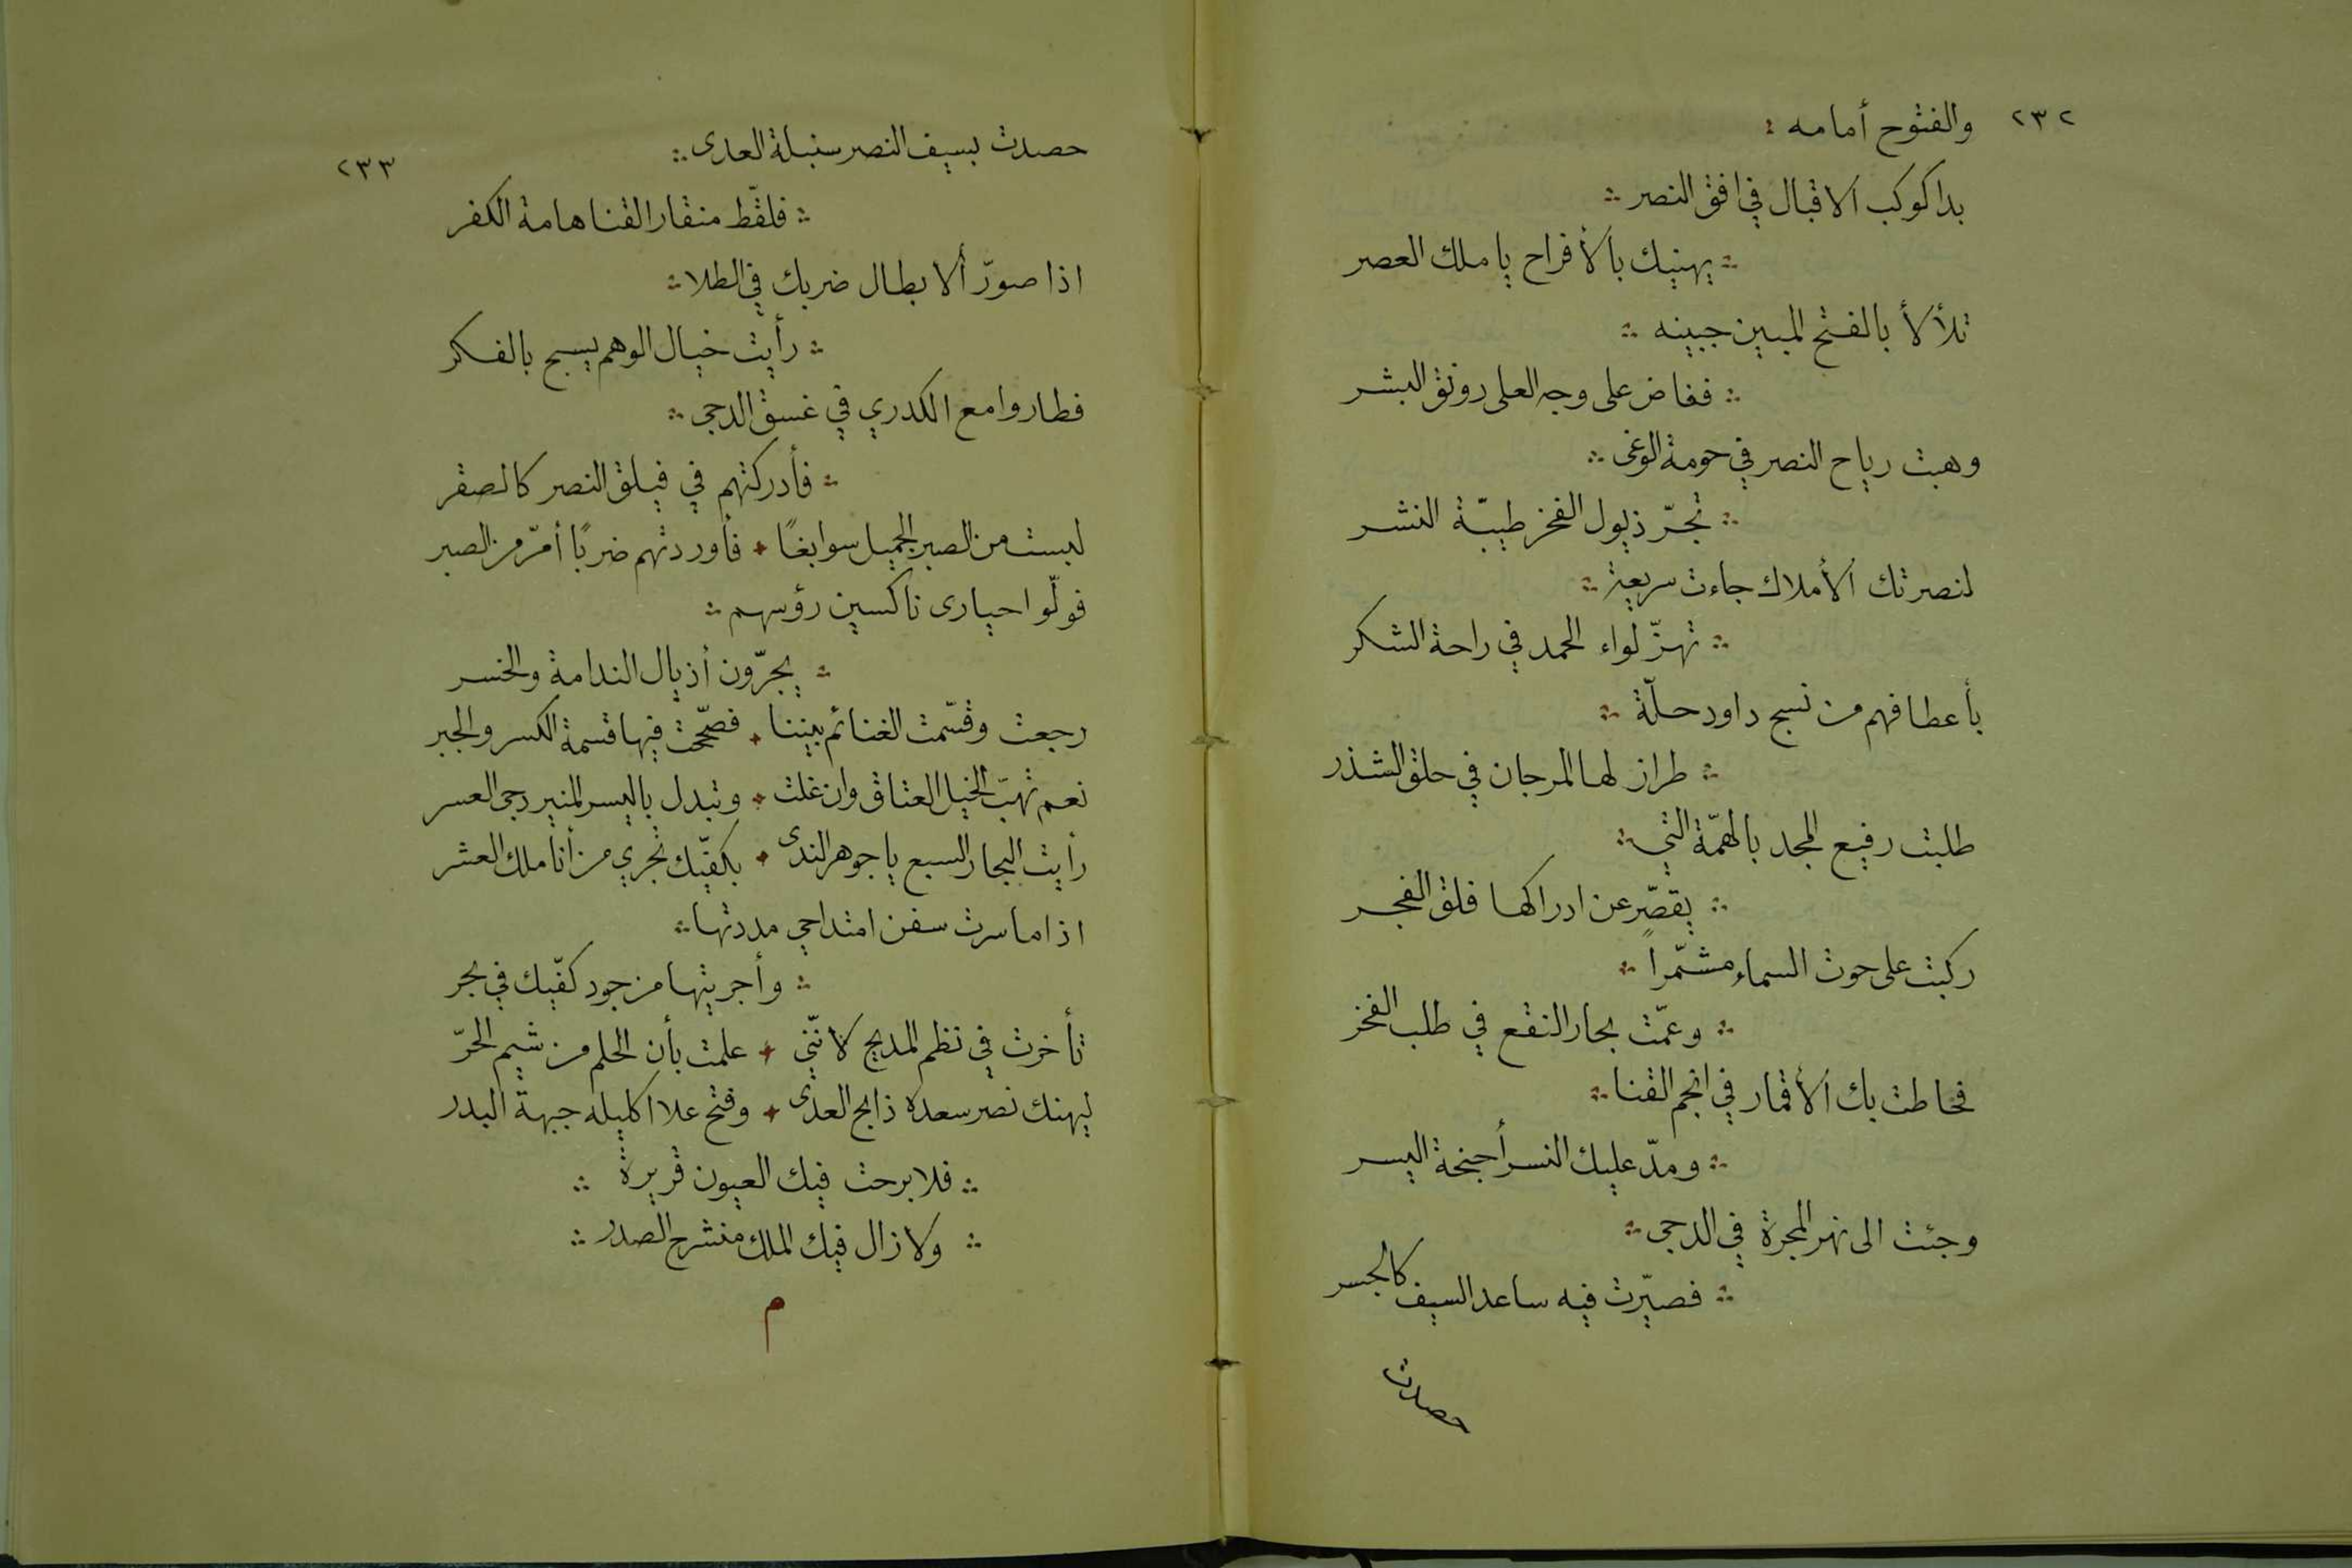 ٢٣٢
والفتوح أمامه :
بدا كوكب الاقبال في افق النصر
يهنيك بالأفراح يا ملك العصر
تلألأ بالفتح المبين جبينه
ففاض على وجه العلى رونق البشر
وهبت رياح النصر في حومة الوغى
تجرّ ذيول الفخر طيبّة النشر
لنصرتك الأملاك جاءت سريعة
تهزّ لواء الحمد في راحة الشكر
بأعطافهم من نسج داود حلّة
طراز لها المرجان في حلق الشذر
طلبت رفيع المجد بالهمّة التي
يقصّر عن ادراكها فلق الفجر
ركبت على حوت السماء مشمّراً
وعمّت بحار النقع في طلب الفخر
فحاطت بك الأقمار في انجم القنا
ومدّ عليك النسر أجنحة اليسر
وجئت الى نهر المجرة في الدجى
فصيّرت فيه ساعد السيف كالجسر
حصدت
٢٣٣
حصدت بسيف النصر سنبلة العدى
فلقّط منقار القنا هامة الكفر
اذا صوّر ألابطال ضربك في الطلا
رأيت خيال الوهم يسبح بالفكر
فطاروا مع الكدري في غسق الدجى
فأدركتهم في فيلق النصر كالصقر
لبست من الصبر الجميل سوابغًا ✦ فأوردتهم ضربًا أمرّ من الصبر
فولّوا حيارى ناكسين رؤسهم
يجرّون أذيال الندامة والخسر
رجعت وقسّمت الغنائم بيننا ✦ فصحّحت فيها قسمة الكسر والجبر
نعم تهبّ الخيل العتاق وان غلت ✦ وتبدل باليسر المنير دجى العسر
رأيت البحار السبع يا جوهر الندى ✦ بكفّيك تجري من أناملك العشر
اذا ما سرت سفن امتداحي مددتها
وأجريتها من جود كفّيك في بحر
تأخرت في نظم المديح لانّني ✦ علمت بأن الحلم من شيم الحرّ
ليهنك نصر سعده ذابح العدى ✦ وفتح علا اكليله جبهة البدر
فلا برحت فيك العيون قريرة
ولا زال فيك الملك منشرح الصدر
م